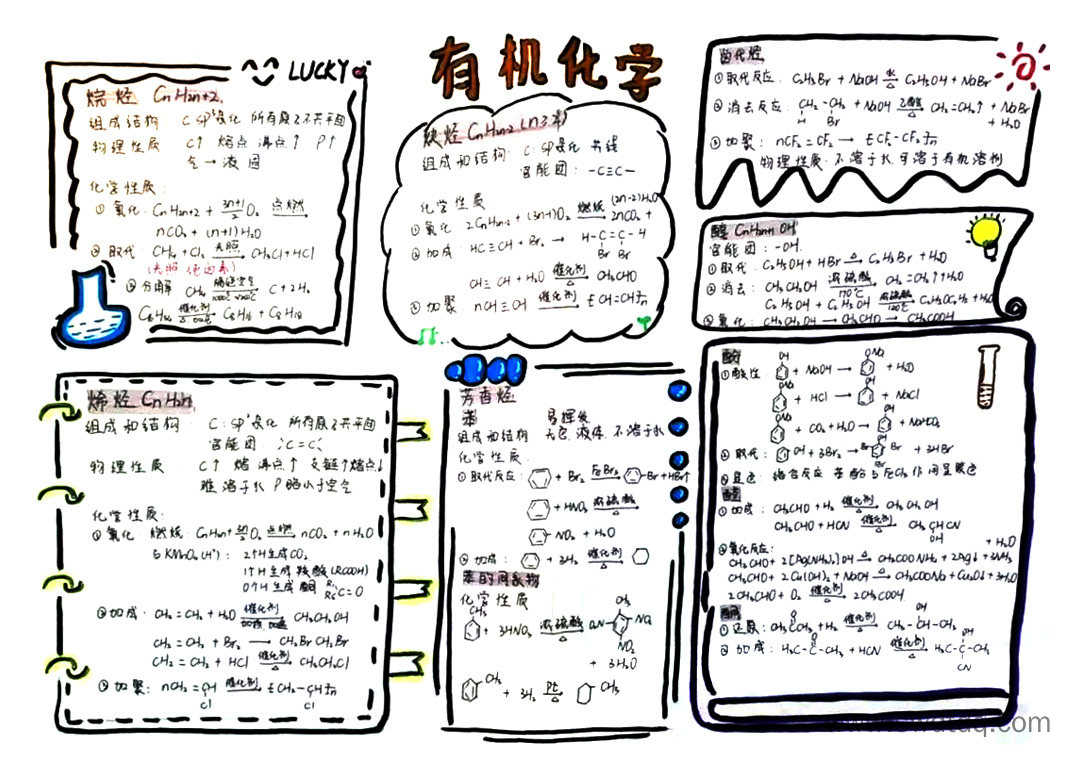 有机化学
LUCKY
烷烃 CnH2n+2
组成结构 C:SP³杂化 所有原子不共平面
物理性质 C↑ 熔点 沸点↑ ρ↑
气→液 固
化学性质:
①氧化: CnH2n+2 + 3n+1/2 O₂ 点燃→
nCO₂ + (n+1)H₂O
②取代: CH₄ + Cl₂ 光照→ CH₃Cl + HCl
③分解 CH₄ 隔绝空气→ C + 2H₂
催化剂→ C₈H₁₆ + C₈H₁₈
炔烃 CnH2n-2
组成和结构: C:SP杂化 共线
官能团: -C≡C-
化学性质
①氧化: 2CnH2n-2 + (3n-1)O₂ 燃烧→ 2nCO₂ + (2n-2)H₂O
②加成: HC≡CH + Br₂ → H-C=C-H
Br Br
CH≡CH + H₂O 催化剂△→ CH₃CHO
③加聚 nCH≡CH 催化剂→ [CH=CH]n
卤代烃
①取代反应: C₂H₅Br + NaOH 水△→ C₂H₅OH + NaBr
②消去反应: CH₂-CH₂ + NaOH 乙醇△→ CH₂=CH₂↑ + NaBr
H Br + H₂O
③加聚: nCF₂=CF₂ → [CF₂-CF₂]n
物理性质: 不溶于水 可溶于有机溶剂
醇 CnH2n+1OH
官能团: -OH
①取代: C₂H₅OH + HBr △→ C₂H₅Br + H₂O
②消去: CH₃CH₂OH 浓硫酸170℃→ CH₂=CH₂↑ + H₂O
C₂H₅OH + C₂H₅OH 浓硫酸→ C₂H₅OC₂H₅ + H₂O
③氧化: CH₃CH₂OH → CH₃CHO → CH₃COOH
烯烃 CnH2n
组成和结构: C:SP²杂化 所有原子共平面
官能团 C=C
物理性质: C↑ 熔沸点↑ 支链↑熔点↓
难溶于水 ρ略小空气
化学性质:
①氧化 燃烧: CnH2n + 3n/2 O₂ 点燃→ nCO₂ + nH₂O
与KMnO₄(H⁺): 2个H生成CO₂
1个H生成羧酸(RCOOH)
0个H生成酮 R₁ R₂ C=O
②加成: CH₂=CH₂ + H₂O 催化剂 加热 加压→ CH₃CH₂OH
CH₂=CH₂ + Br₂ → CH₂BrCH₂Br
CH₂=CH₂ + HCl 催化剂△→ CH₃CH₂Cl
③加聚: nCH₂=CH 催化剂△→ [CH₂-CH]n
Cl Cl
芳香烃
苯 易挥发
组成和结构 无色 液体 不溶于水
化学性质:
①取代反应: + Br₂ FeBr₃→ -Br + HBr↑
+ HNO₃ 浓硫酸△→
-NO₂ + H₂O
②加成: + 3H₂ 催化剂△→
苯的同系物
化学性质
CH₃ + 3HNO₃ 浓硫酸△→ CH₃ O₂N NO₂ NO₂
+ 3H₂O
CH₃ + 3H₂ Pt△→ CH₃
酚
①酸性 OH + NaOH → ONa + H₂O
ONa + HCl → OH + NaCl
ONa + CO₂ + H₂O → OH + NaHCO₃
②取代: OH + 3Br₂ → Br OH Br Br + 3HBr
③显色: 络合反应 苯酚与FeCl₃作用显紫色
醛
①加成: CH₃CHO + H₂ 催化剂△→ CH₃CH₂OH
CH₃CHO + HCN 催化剂△→ CH₃CHCN
OH
②氧化反应: + H₂O
CH₃CHO + 2[Ag(NH₃)₂]OH △→ CH₃COONH₄ + 2Ag↓ + 3NH₃
CH₃CHO + 2Cu(OH)₂ + NaOH △→ CH₃COONa + Cu₂O↓ + 3H₂O
2CH₃CHO + O₂ 催化剂△→ 2CH₃COOH
酮
①还原: CH₃CCH₃ + H₂ 催化剂△→ CH₃-CH-CH₃
②加成: H₃C-C-CH₃ + HCN 催化剂△→ H₃C-C-CH₃
OH
CN